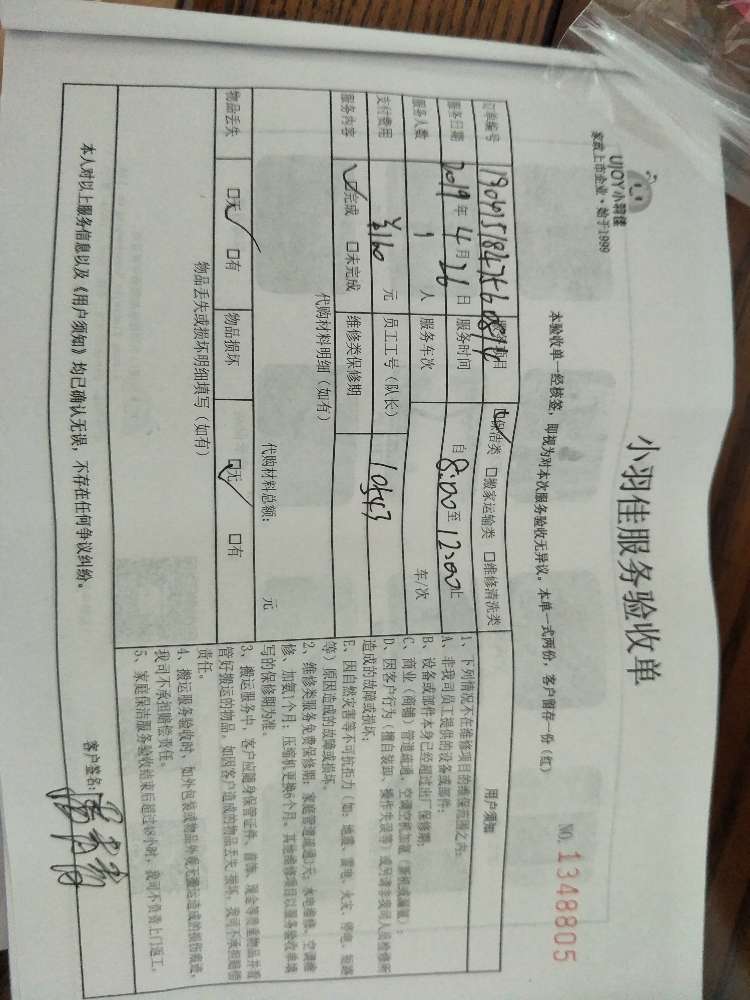 UJOY小羽佳
家政上市企业·始于1999
小羽佳服务验收单
NO. 1348805
本验收单一经核签，即视为对本次服务验收无异议。本单一式两份，客户留存一份（红）
订单编号
服务项目 保洁类 搬家运输类 维修清洗类
服务日期 2019年4月26日 服务时间 自8:00至12:00止
服务人数 1人 服务车次 车/次
支付费用 ¥160元 员工工号（队长） 10453
服务内容 完成 未完成 维修类保修期
代购材料明细（如有）
代购材料总额： 元
物品丢失 无 有 物品损坏 无 有
物品丢失或损坏明细填写（如有）
用户须知
1、下列情况不在维修项目的维保范围之内：
A、非我司员工提供的设备或部件；
B、设备或部件本身已经超过出厂保修期；
C、商业（商铺）管道疏通，空调空机加氟（新机或漏氟）；
D、因客户行为（擅自装卸、操作失误等）或另请非我司人员检修所
造成的故障或损坏；
E、因自然灾害等不可抗拒力（如：地震、雷电、火灾、停电、短路
等）原因造成的故障或损坏。
2、维修类服务免费保修期：家庭管道疏通7天；水电维修、空调维
修、加氟1个月；压缩机更换6个月。其他维修项目以服务验收单填
写的保修期为准。
3、搬运服务中，客户应随身保管证件、首饰、现金等贵重物品并看
管好搬运的物品，如因客户造成的物品丢失、损坏，我司不承担赔偿
责任。
4、搬运服务验收时，如外包装或物品外观无搬运造成的损伤痕迹，
我司不承担赔偿责任。
5、家庭保洁服务验收结束后超过48小时，我司不负责上门返工。
本人对以上服务信息以及《用户须知》均已确认无误，不存在任何争议纠纷。
客户签名：